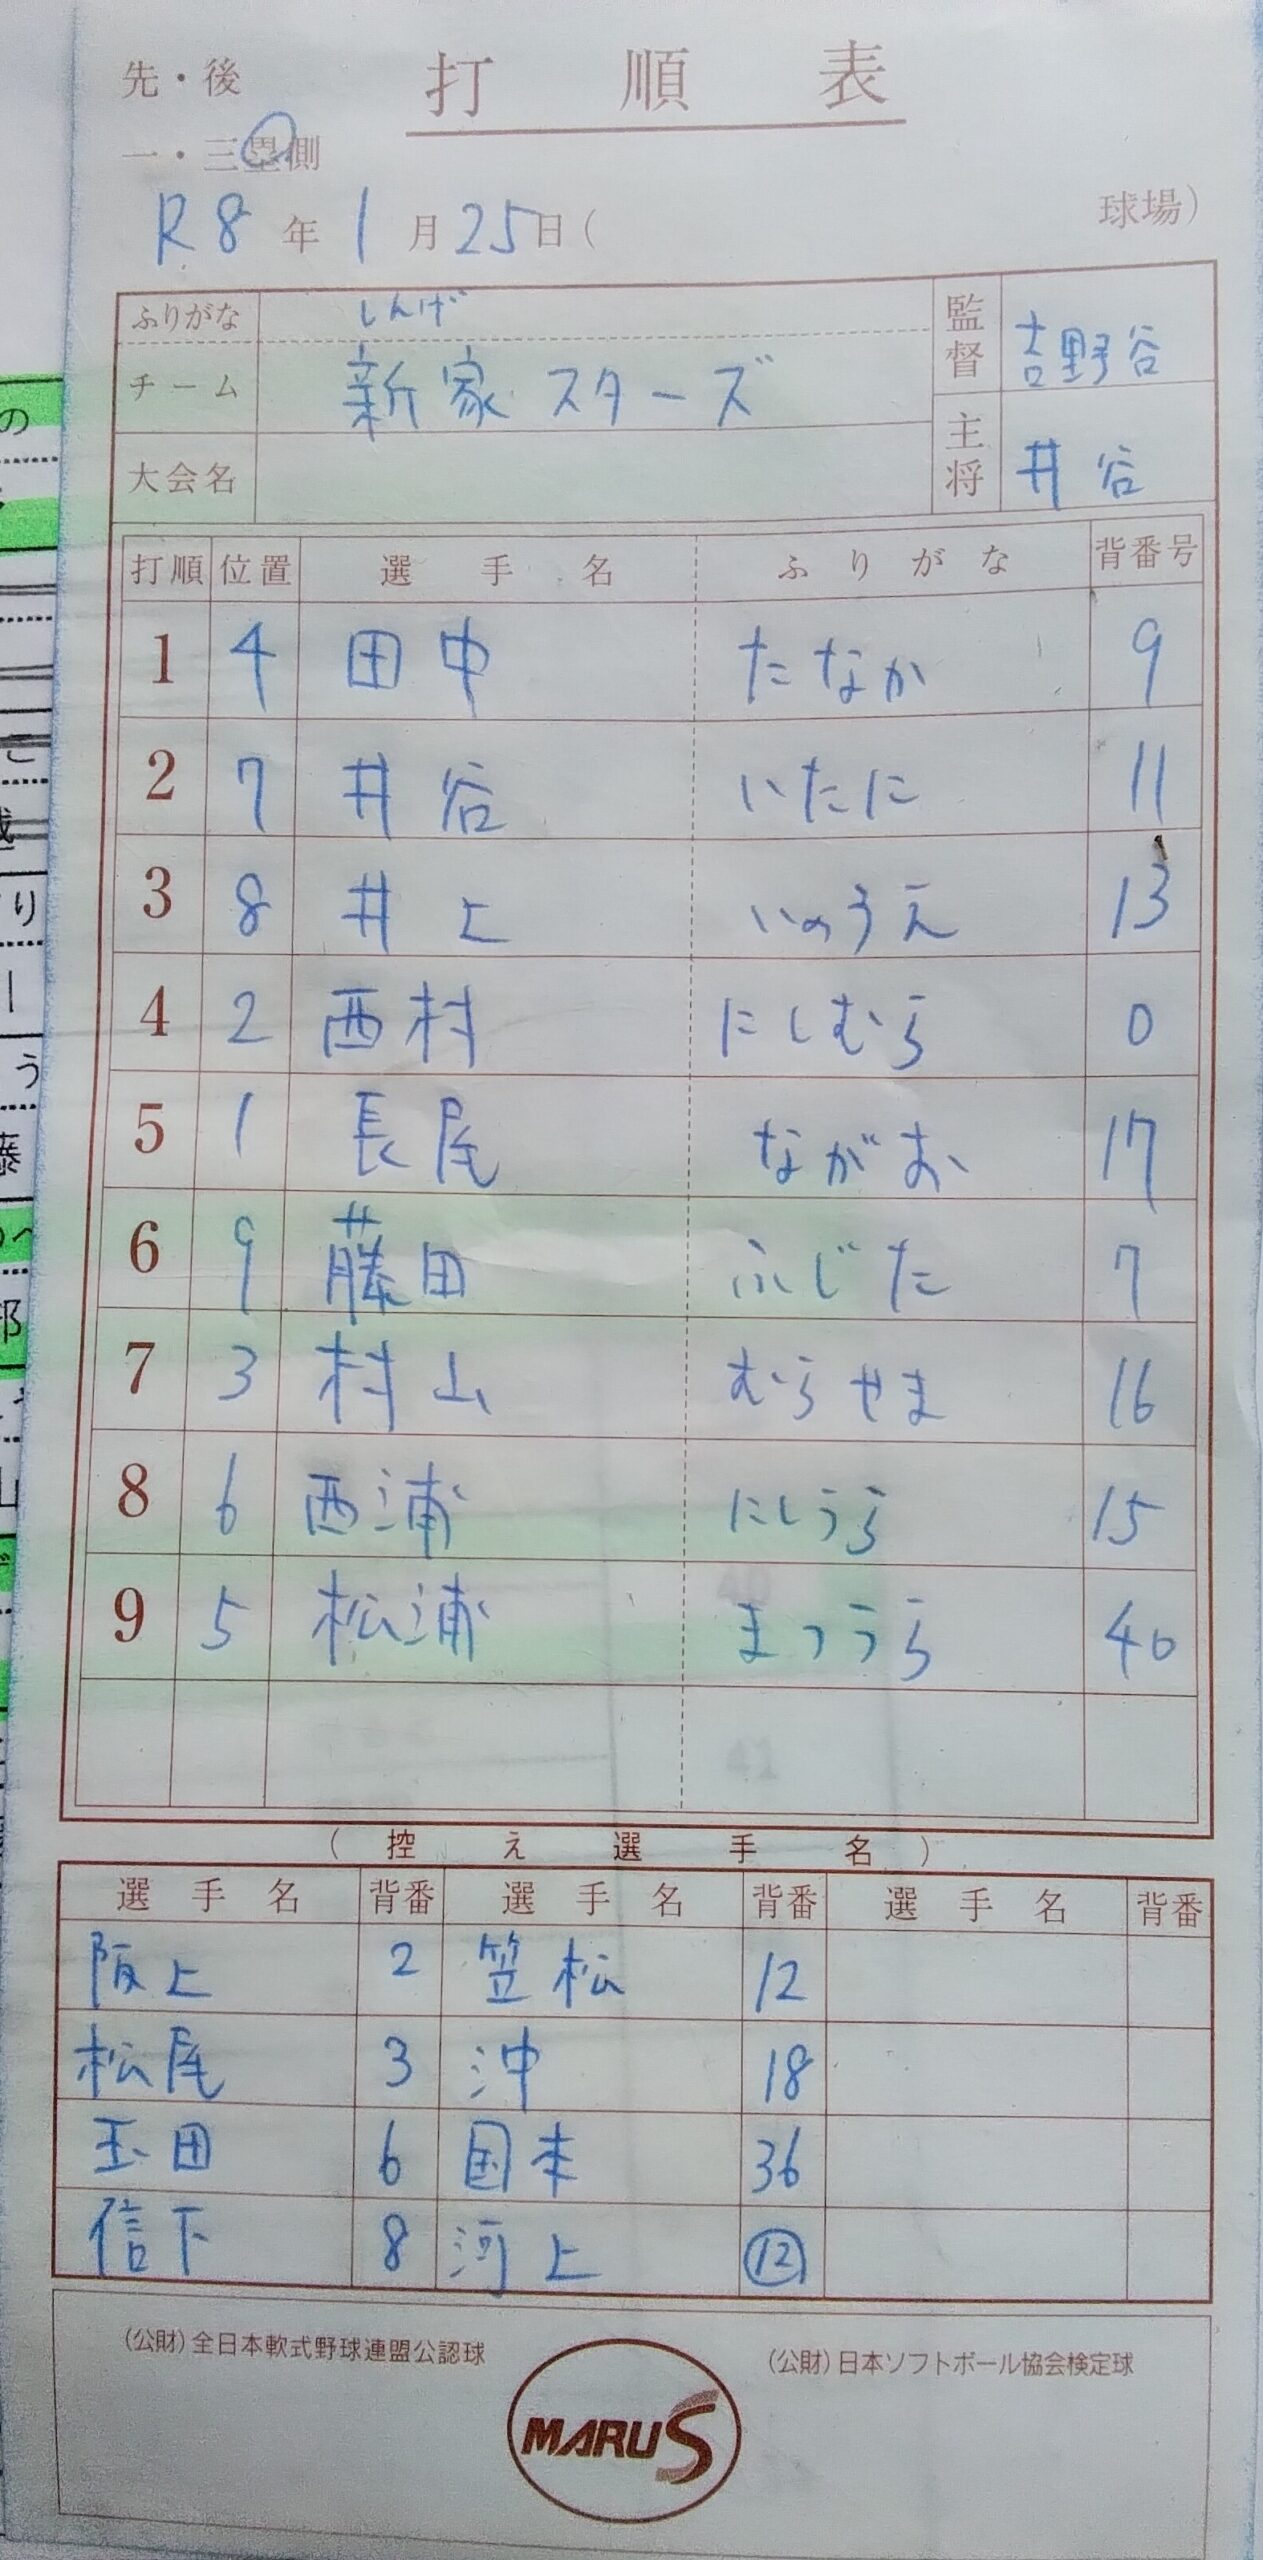 打順表
先・後
一・三塁側
R8年1月25日( 球場)
ふりがな しんげ
チーム 新家スターズ
監督 吉野谷
大会名
主将 井谷
打順 位置 選手名 ふりがな 背番号
1 4 田中 たなか 9
2 7 井谷 いたに 11
3 8 井上 いのうえ 13
4 2 西村 にしむら 0
5 1 長尾 ながお 17
6 9 藤田 ふじた 7
7 3 村山 むらやま 16
8 6 西浦 にしうら 15
9 5 松浦 まつうら 40
(控え選手名)
選手名 背番 選手名 背番 選手名 背番
阪上 2 笠松 12
松尾 3 沖 18
玉田 6 国本 36
信下 8 河上 ⑫
(公財)全日本軟式野球連盟公認球
(公財)日本ソフトボール協会検定球
MARUS